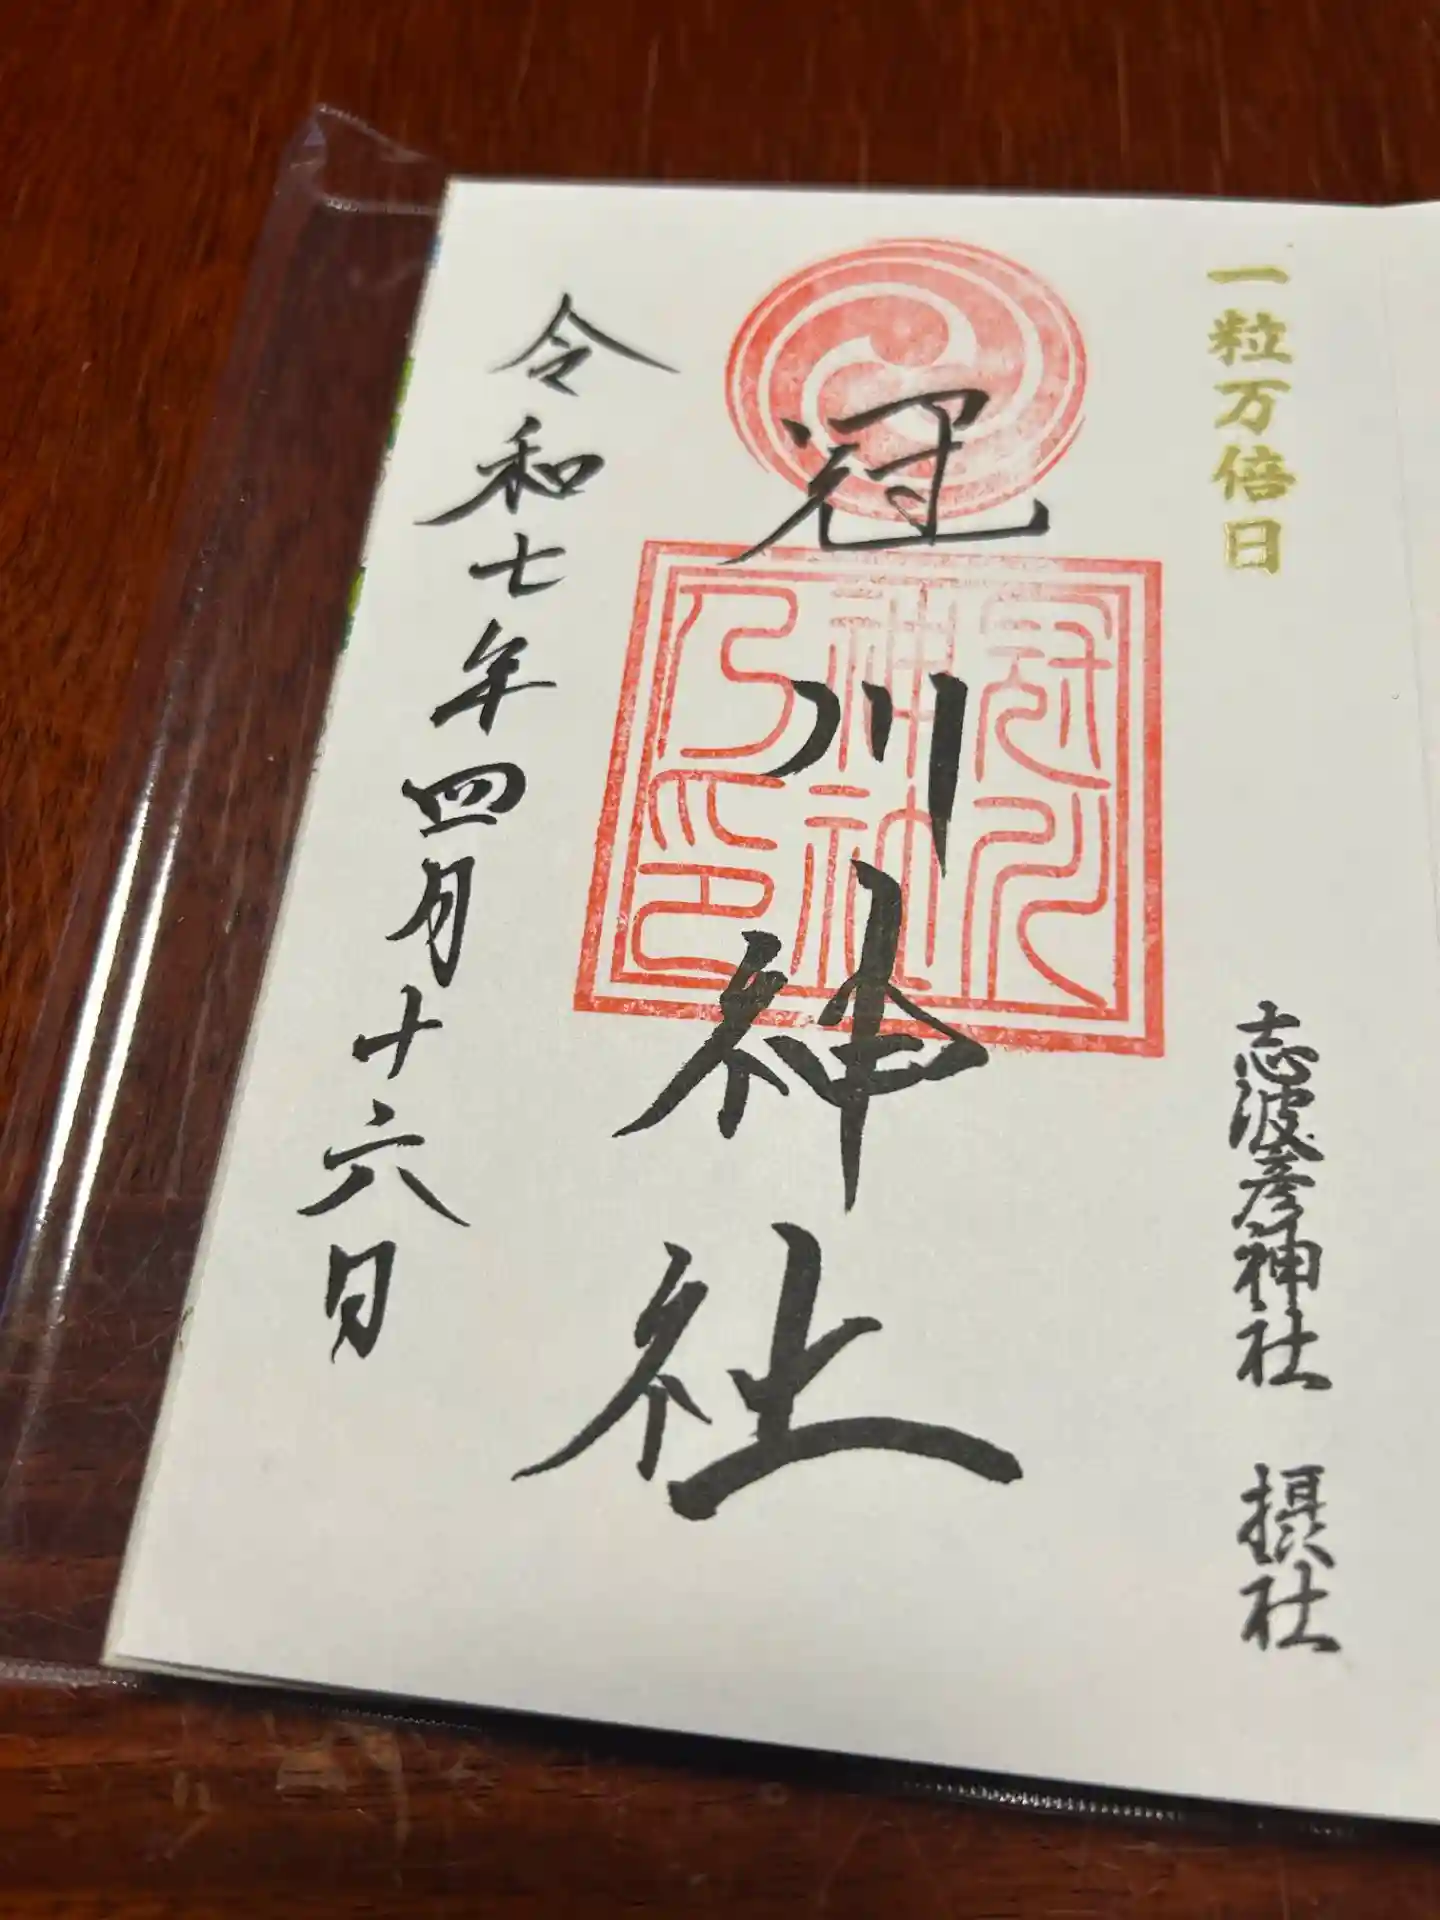 一粒万倍日
志波彦神社 摂社
冠川神社
冠川
神社
乃印
令和七年四月十六日